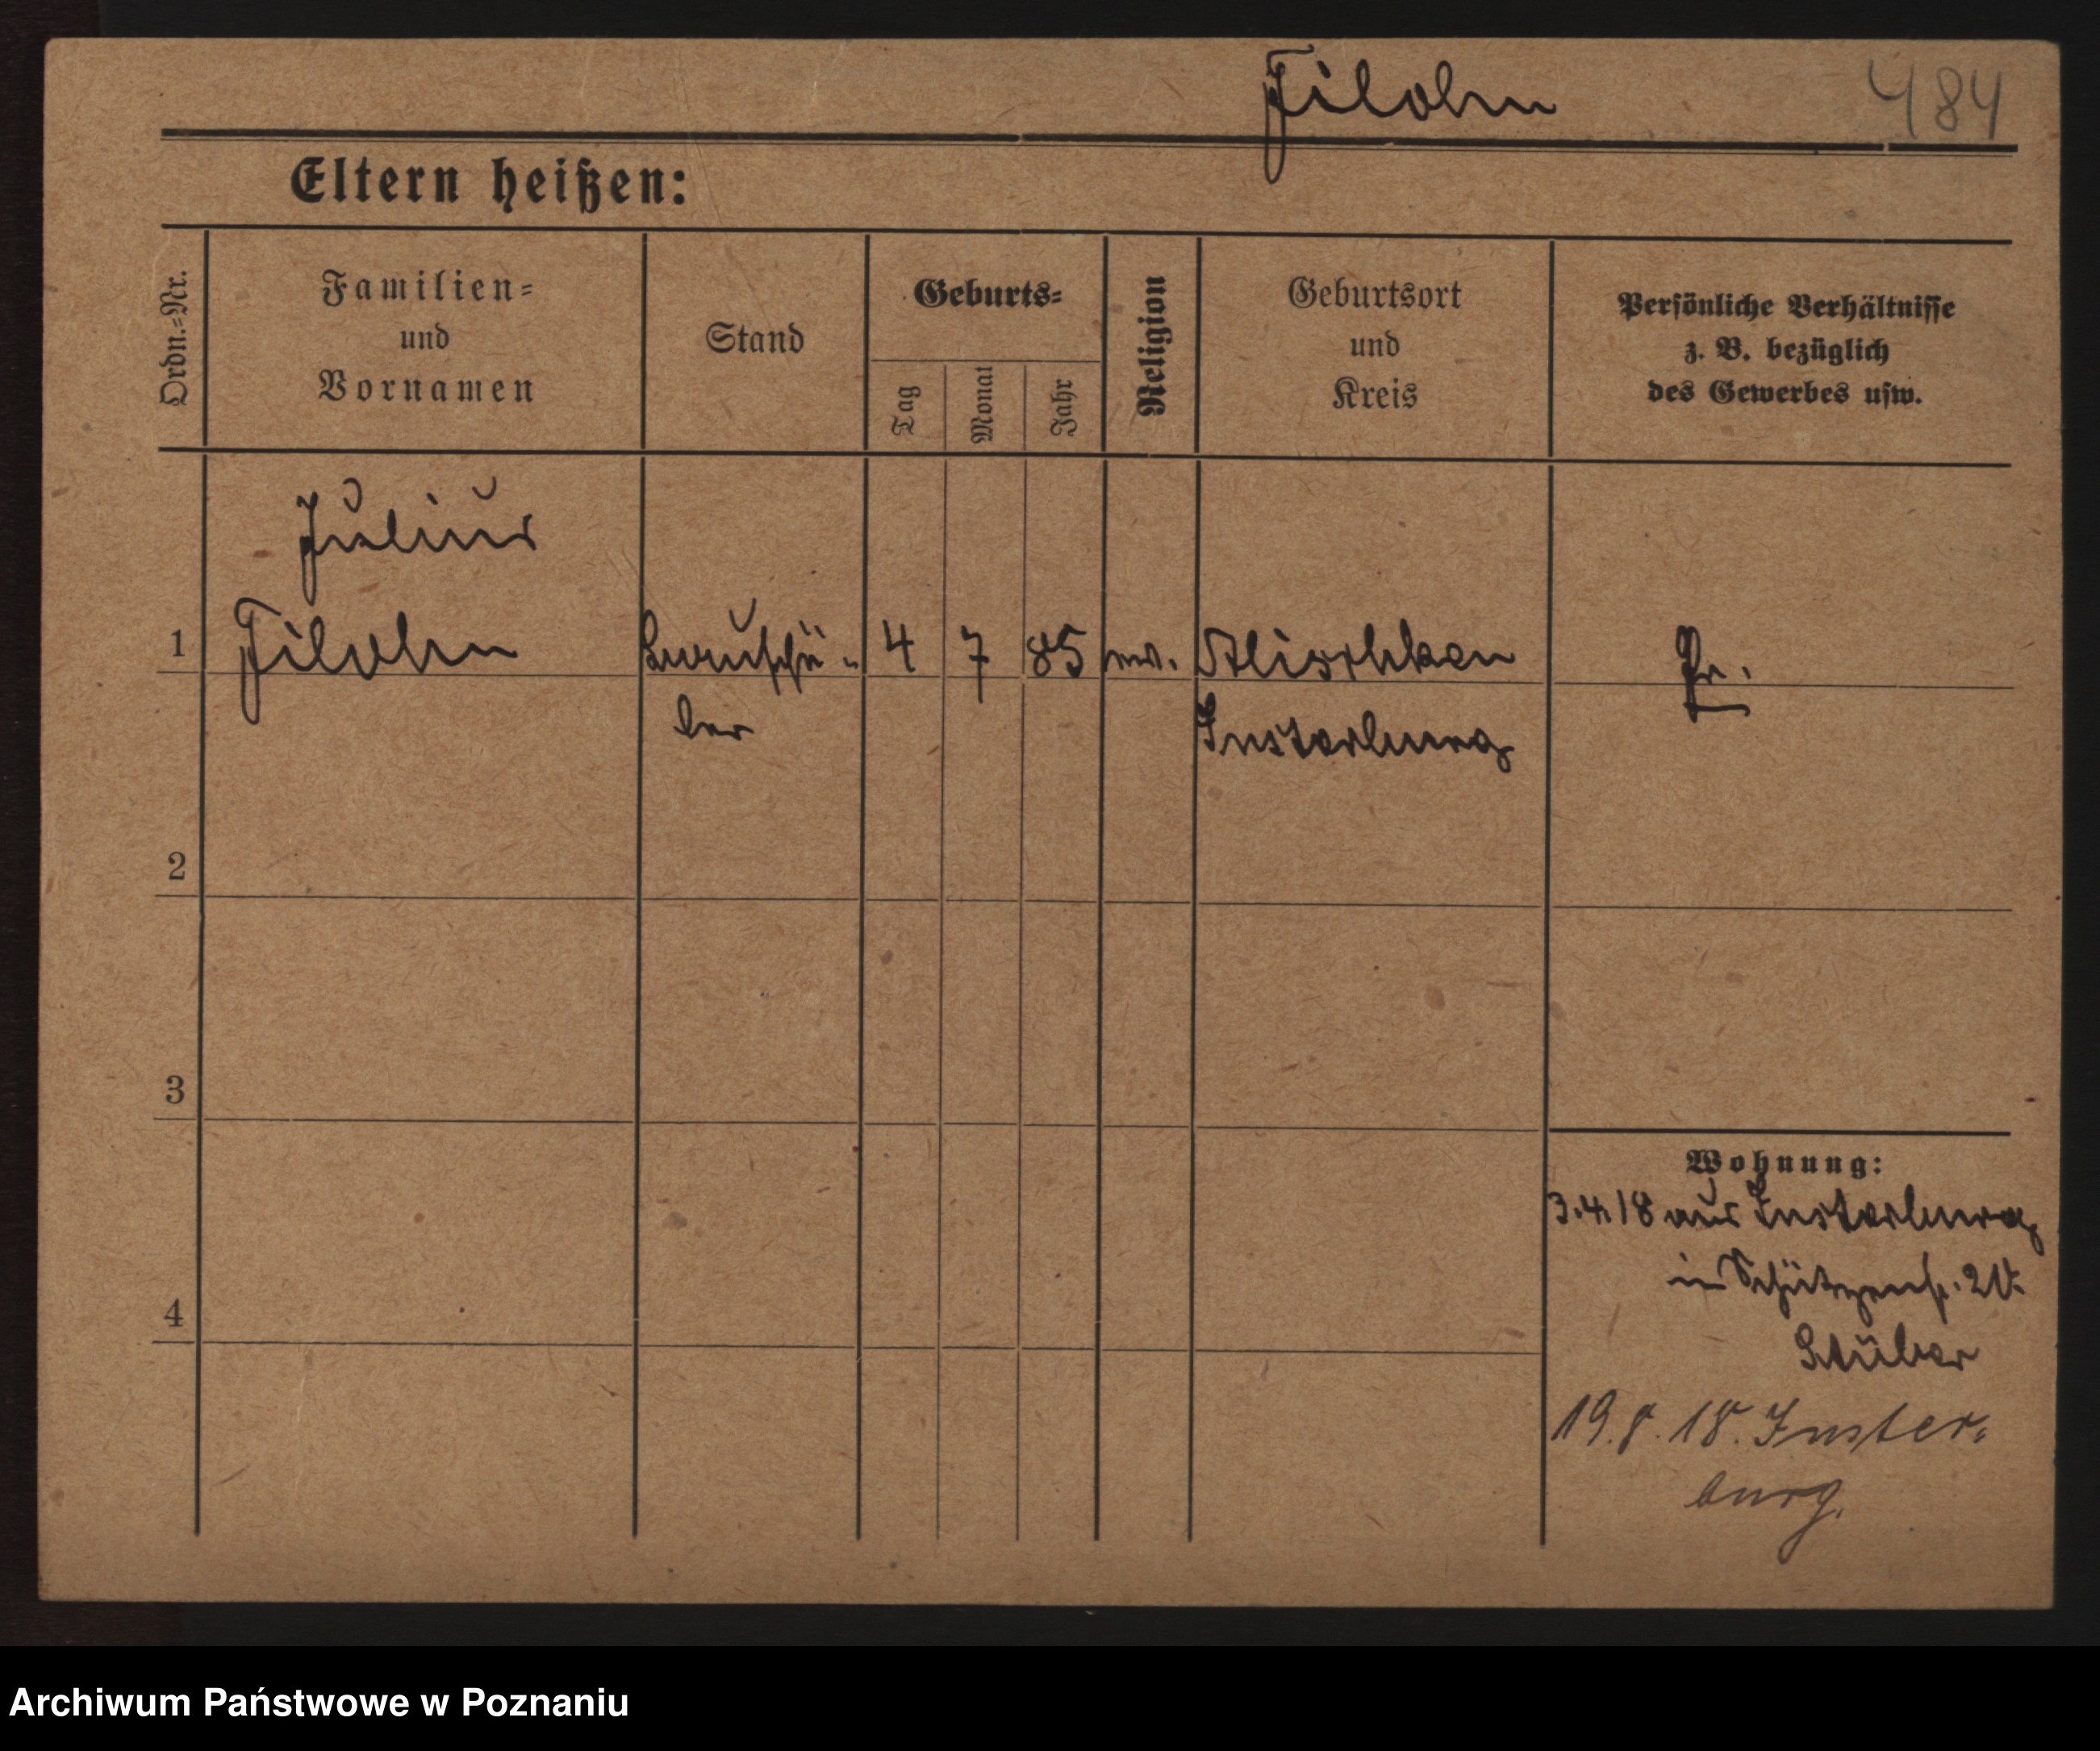 Filohn
484
Eltern heißen:
Ordn.-Nr.
Familien-
und
Vornamen
Stand
Geburts-
Tag
Monat
Jahr
Religion
Geburtsort
und
Kreis
Persönliche Verhältnisse
z. B. bezüglich
des Gewerbes usw.
Julius
1 Filohn 4 7 85 Pr.
Insterburg
2
3
4
Wohnung:
3.4.18 aus Insterburg
in Schützenstr.
Stüber
19.8.18. Inster-
burg.
Archiwum Państwowe w Poznaniu